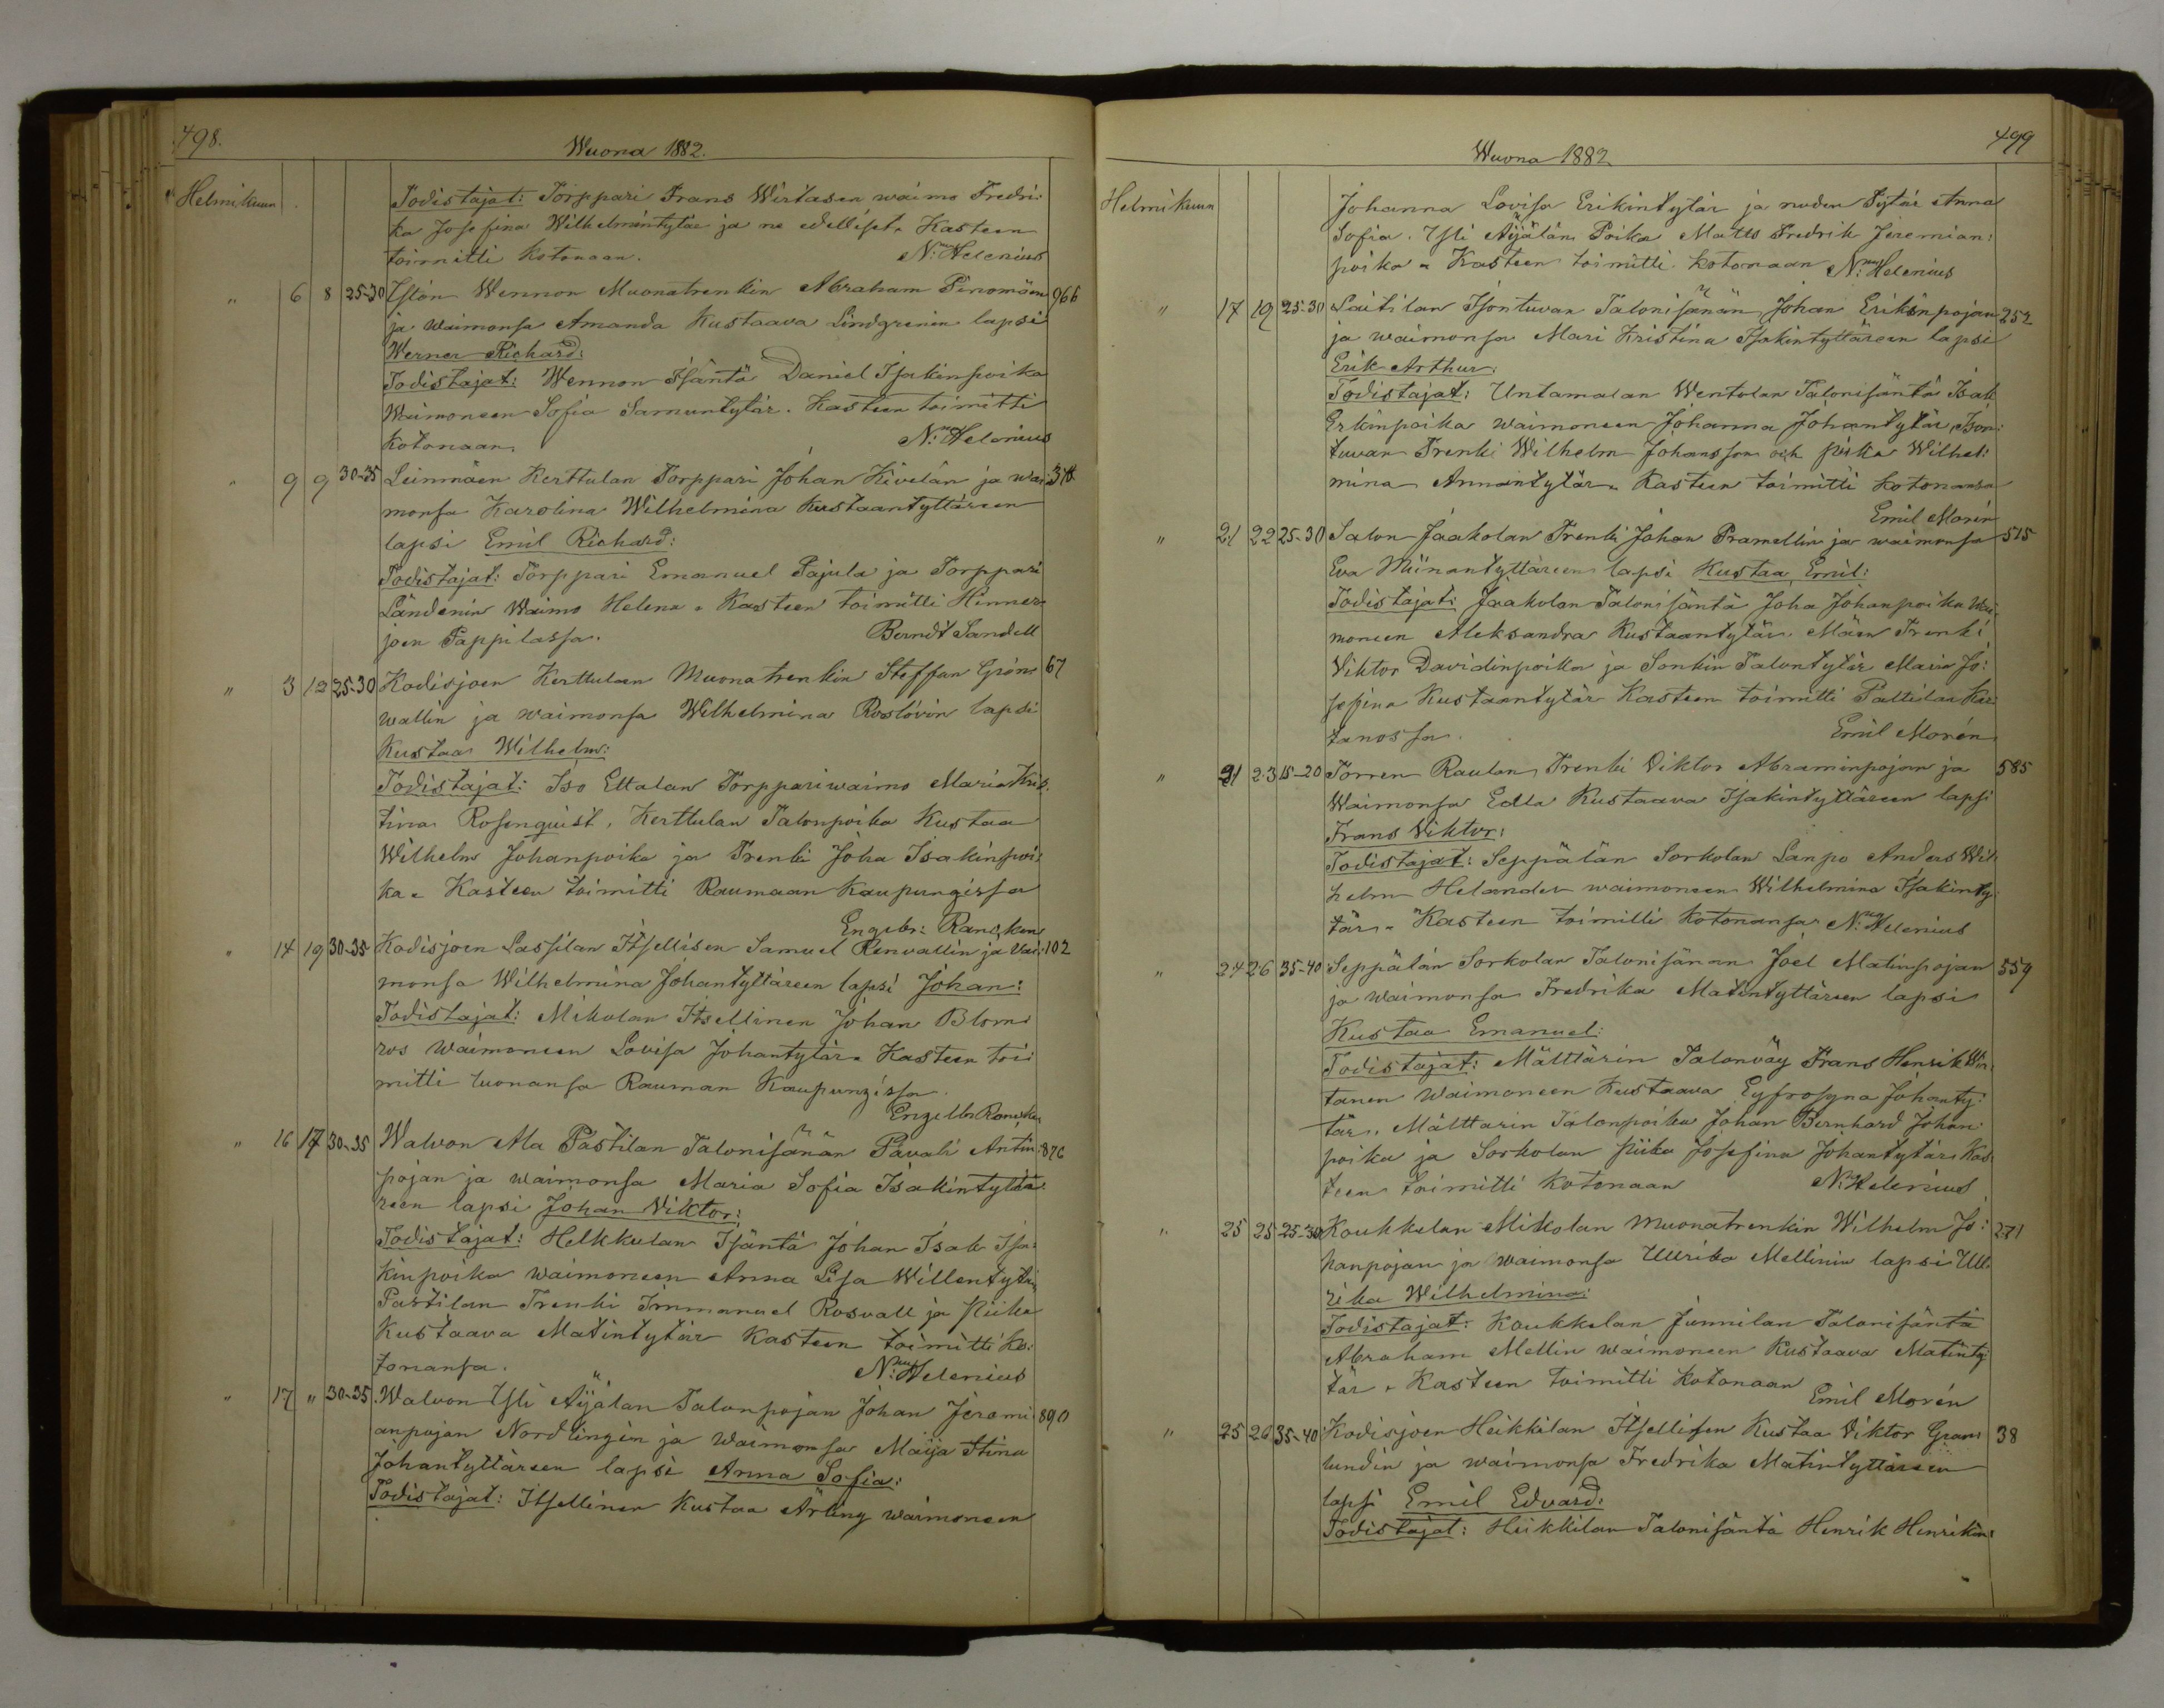 498.
Wuonna 1882.
Helmikuun
Todistajat: Torppari Frans Wirtasen waimo Fredri:
ka Josefina Wilhelmintytär ja ne edelliset. Kasteen
toimitti kotonaan. N: Helenius
" 6 8 25-30 Ylön Wennon Muonatrenkin Abraham Pinomäen 966
ja waimonsa Amanda Kustaava Lindgrenin lapsi
Werner Richard:
Todistajat: Wennon Isäntä Daniel Isakinpoika
Waimoneen Sofia Samuntytär. Kasteen toimitti
kotonaan. N: Helenius
" 9 9 30-35 Leinmäen Kerttulan Torppari Johan Kivelän ja wai:
monsa Karolina Wilhelmina Kustaantyttäreen
lapsi Emil Richard:
Todistajat: Torppari Emanuel Pajula ja Torppari
Ländenin Waimo Helena. Kasteen toimitti Hinner:
joen Pappilassa. Berndt Sandell
" 3 12 25-30 Kodisjoen Kerttulan Muonatrenkin Steffan Grön: 67
wallin ja waimonsa Wilhelmina Roslövin lapsi
Kustaa Wilhelm:
Todistajat: Iso Ettalan Torppariwaimo Maria Kris:
tina Rosenquist, Kerttulan Talonpoika Kustaa
Wilhelm Johanpoika ja Trenki Joha Isakinpoi:
ka. Kasteen toimitti Raumaan Kaupungissa
Engelbr: Rancken
" 14 19 30-35 Kodisjoen Lassilan Itsellisen Samuel Renvallin ja Vai: 102
monsa Wilhelmina Johantyttäreen lapsi Johan:
Todistajat: Mikolan Itsellinen Johan Blom:
ros waimoneen Lovisa Johantytär. Kasteen toi:
mitti luonansa Rauman Kaupungissa.
Engelbr Rancken
" 16 17 30-35 Walvon Ala Pastilan Talonisänän Pavali Antin: 876
pojan ja waimonsa Maria Sofia Isakintyttä:
reen lapsi Johan Viktor:
Todistajat: Helkkulan Isäntä Johan Isak Isa:
kinpoika waimoneen Anna Lisa Willentytär,
Pastilan Trenki Immanuel Rosvall ja Piika
Kustaava Matintytär Kasteen toimitti ko:
tonansa. N: Helenius
" 17 " 30-35 Walvon Yli Äijälan Talonpojan Johan Jeremi: 890
anpojan Nordlingin ja waimonsa Maija Stina
Johantyttäreen lapsi Anna Sofia:
Todistajat: Itsellinen Kustaa Ärling waimoneen
499
Wuonna 1882
Helmikuun
Johanna Lovisa Erikintytär ja nuden Tytär Anna
Sofia. Yli Äijälän Poika Matts Fredrik Jeremian:
poika. Kasteen toimitti kotonaan N: Helenius
" 17 19 25-30 Laitilan Isontuvan Talonisänän Johan Erikinpojan 252
ja waimonsa Mari Kristina Isakintyttäreen lapsi
Erik Arthur:
Todistajat: Untamalan Wentolan Talonisäntä Isak
Erkinpoika waimoneen Johanna Johantytär, Ison:
tuvan Trenki Wilhelm Johansson och piika Wilhel:
mina Annantytär. Kasteen toimitti kotonansa
Emil Morén
" 21 22 25-30 Salon Jaakolan Trenki Johan Pramellin ja waimonsa 515
Eva Miinantyttäreen lapsi Kustaa Emil:
Todistajat: Jaakolan Talonisäntä Joha Johanpoika Wai:
moneen Aleksandra Kustaantytär. Mäen Trenki
Viktor Davidinpoika ja Sonkin Talontytär Maria Jo:
sefina Kustaantytär Kasteen toimitti Palttilan Kar:
tanossa. Emil Morén
" 21 23 15-20 Torren Raulan Trenki Viktor Abraminpojan ja 585
Waimonsa Edla Kustaava Isakintyttäreen lapsi
Frans Viktor:
Todistajat: Seppälän Sorkolan Lanpo Anders Wil:
helm Helander waimoneen Wilhelmina Isakinty:
tär. Kasteen toimitti kotonansa N: Helenius
" 24 26 35-40 Seppälän Sorkolan Talonisänän Joel Matinpojan 559
ja waimonsa Fredrika Matintyttäreen lapsi
Kustaa Emanuel:
Todistajat: Mälttärin Talonväy Frans Henrik Wir:
tanen Waimoneen Kustaava Eyfrosyna Johanty:
tär, Mälttarin Talonpoika Johan Bernhard Johan:
poika ja Sorkolan Piika Josefina Johantytär. Kas:
teen toimitti kotonaan N: Helenius
" 25 25 25-30 Koukkelan Mikolan Muonatrenkin Wilhelm Jo: 271
hanpojan ja waimonsa Ulrika Mellinin lapsi Ul:
rika Wilhelmina:
Todistajat: Koukkelan Junnilan Talonisäntä
Abraham Mellin waimoneen Kustaava Matinty:
tär. Kasteen toimitti kotonaan Emil Morén
" 25 26 35-40 Kodisjoen Heikkilan Itsellisen Kustaa Viktor Gran: 38
lundin ja waimonsa Fredrika Matintyttäreen
lapsi Emil Edvard:
Todistajat: Heikkilan Talonisäntä Henrik Henrikin: